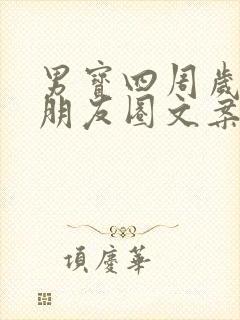 男寶四周歲
朋友圈文案
項慶華